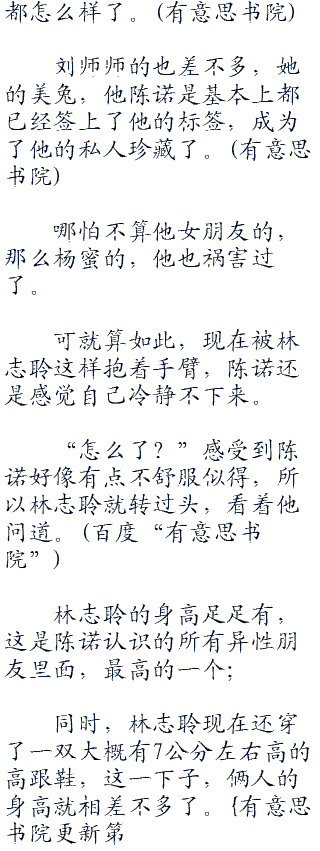 都怎么样了。(有意思书院)
刘师师的也差不多，她
的美兔，他陈诺是基本上都
已经签上了他的标签，成为
了他的私人珍藏了。(有意思
书院)
哪怕不算他女朋友的，
那么杨蜜的，他也祸害过
了。
可就算如此，现在被林
志聆这样抱着手臂，陈诺还
是感觉自己冷静不下来。
“怎么了？”感受到陈
诺好像有点不舒服似得，所
以林志聆就转过头，看着他
问道。(百度“有意思书
院”)
林志聆的身高足足有，
这是陈诺认识的所有异性朋
友里面，最高的一个；
同时，林志聆现在还穿
了一双大概有7公分左右高的
高跟鞋，这一下子，俩人的
身高就相差不多了。{有意思
书院更新第